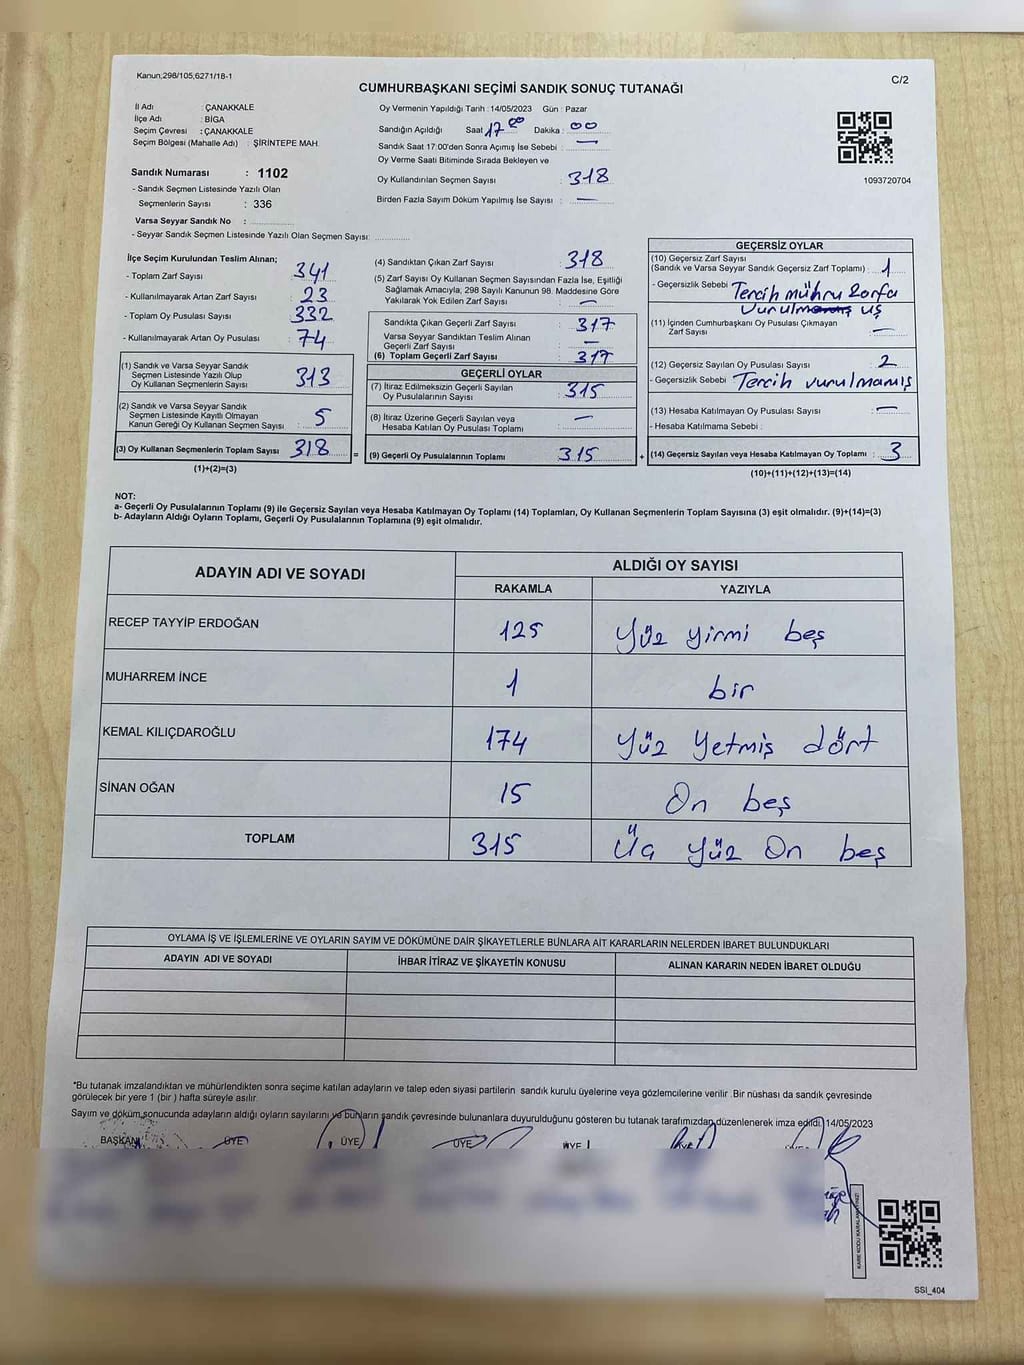 Kanun,298/105,6271/18-1
C/2
CUMHURBAŞKANI SEÇİMİ SANDIK SONUÇ TUTANAĞI
İl Adı : ÇANAKKALE
İlçe Adı : BİGA
Seçim Çevresi : ÇANAKKALE
Seçim Bölgesi (Mahalle Adı) : ŞİRİNTEPE MAH.
Sandık Numarası : 1102
- Sandık Seçmen Listesinde Yazılı Olan
Seçmenlerin Sayısı : 336
Varsa Seyyar Sandık No :
- Seyyar Sandık Seçmen Listesinde Yazılı Olan Seçmen Sayısı:
Oy Vermenin Yapıldığı Tarih : 14/05/2023 Gün : Pazar
Sandığın Açıldığı Saat 17 00 Dakika : 00
Sandık Saat 17:00'den Sonra Açımış İse Sebebi : —
Oy Verme Saati Bitiminde Sırada Bekleyen ve
Oy Kullandırılan Seçmen Sayısı : 318
Birden Fazla Sayım Döküm Yapılmış İse Sayısı : —
1093720704
İlçe Seçim Kurulundan Teslim Alınan;
- Toplam Zarf Sayısı : 341
- Kullanılmayarak Artan Zarf Sayısı : 23
- Toplam Oy Pusulası Sayısı : 332
- Kullanılmayarak Artan Oy Pusulası : 74
(1) Sandık ve Varsa Seyyar Sandık
Seçmen Listesinde Yazılı Olup
Oy Kullanan Seçmenlerin Sayısı : 313
(2) Sandık ve Varsa Seyyar Sandık
Seçmen Listesinde Kayıtlı Olmayan
Kanun Gereği Oy Kullanan Seçmen Sayısı : 5
(3) Oy Kullanan Seçmenlerin Toplam Sayısı 318
(1)+(2)=(3)
(4) Sandıktan Çıkan Zarf Sayısı : 318
(5) Zarf Sayısı Oy Kullanan Seçmen Sayısından Fazla İse, Eşitliği
Sağlamak Amacıyla, 298 Sayılı Kanunun 98. Maddesine Göre
Yakılarak Yok Edilen Zarf Sayısı : —
Sandıkta Çıkan Geçerli Zarf Sayısı : 317
Varsa Seyyar Sandıktan Teslim Alınan
Geçerli Zarf Sayısı : —
(6) Toplam Geçerli Zarf Sayısı : 317
GEÇERLİ OYLAR
(7) İtiraz Edilmeksizin Geçerli Sayılan
Oy Pusulalarının Sayısı : 315
(8) İtiraz Üzerine Geçerli Sayılan veya
Hesaba Katılan Oy Pusulası Toplamı : —
= (9) Geçerli Oy Pusulalarının Toplamı : 315 +
GEÇERSİZ OYLAR
(10) Geçersiz Zarf Sayısı
(Sandık ve Varsa Seyyar Sandık Geçersiz Zarf Toplamı) : 1
- Geçersizlik Sebebi : Tercih mührü Zarfa
uş
(11) İçinden Cumhurbaşkanı Oy Pusulası Çıkmayan
Zarf Sayısı : —
(12) Geçersiz Sayılan Oy Pusulası Sayısı : 2
- Geçersizlik Sebebi : Tercih vurulmamış
(13) Hesaba Katılmayan Oy Pusulası Sayısı : —
- Hesaba Katılmama Sebebi :
(14) Geçersiz Sayılan veya Hesaba Katılmayan Oy Toplamı : 3
(10)+(11)+(12)+(13)=(14)
NOT:
a- Geçerli Oy Pusulalarının Toplamı (9) ile Geçersiz Sayılan veya Hesaba Katılmayan Oy Toplamı (14) Toplamları, Oy Kullanan Seçmenlerin Toplam Sayısına (3) eşit olmalıdır. (9)+(14)=(3)
b- Adayların Aldığı Oyların Toplamı, Geçerli Oy Pusulalarının Toplamına (9) eşit olmalıdır.
ADAYIN ADI VE SOYADI ALDIĞI OY SAYISI
RAKAMLA YAZIYLA
RECEP TAYYİP ERDOĞAN 125 Yüz yirmi beş
MUHARREM İNCE 1 bir
KEMAL KILIÇDAROĞLU 174 Yüz Yetmiş dört
SİNAN OĞAN 15 On beş
TOPLAM 315 Üç yüz On beş
OYLAMA İŞ VE İŞLEMLERİNE VE OYLARIN SAYIM VE DÖKÜMÜNE DAİR ŞİKAYETLERLE BUNLARA AİT KARARLARIN NELERDEN İBARET BULUNDUKLARI
ADAYIN ADI VE SOYADI İHBAR İTİRAZ VE ŞİKAYETİN KONUSU ALINAN KARARIN NEDEN İBARET OLDUĞU
*Bu tutanak imzalandıktan ve mühürlendikten sonra seçime katılan adayların ve talep eden siyasi partilerin sandık kurulu üyelerine veya gözlemcilerine verilir .Bir nüshası da sandık çevresinde
görülecek bir yere 1 (bir ) hafta süreyle asılır.
Sayım ve döküm sonucunda adayların aldığı oyların sayılarını ve bunların sandık çevresinde bulunanlara duyurulduğunu gösteren bu tutanak tarafımızdan düzenlenerek imza edildi. 14/05/2023
BAŞKAN ÜYE ÜYE ÜYE ÜYE
SSİ_404